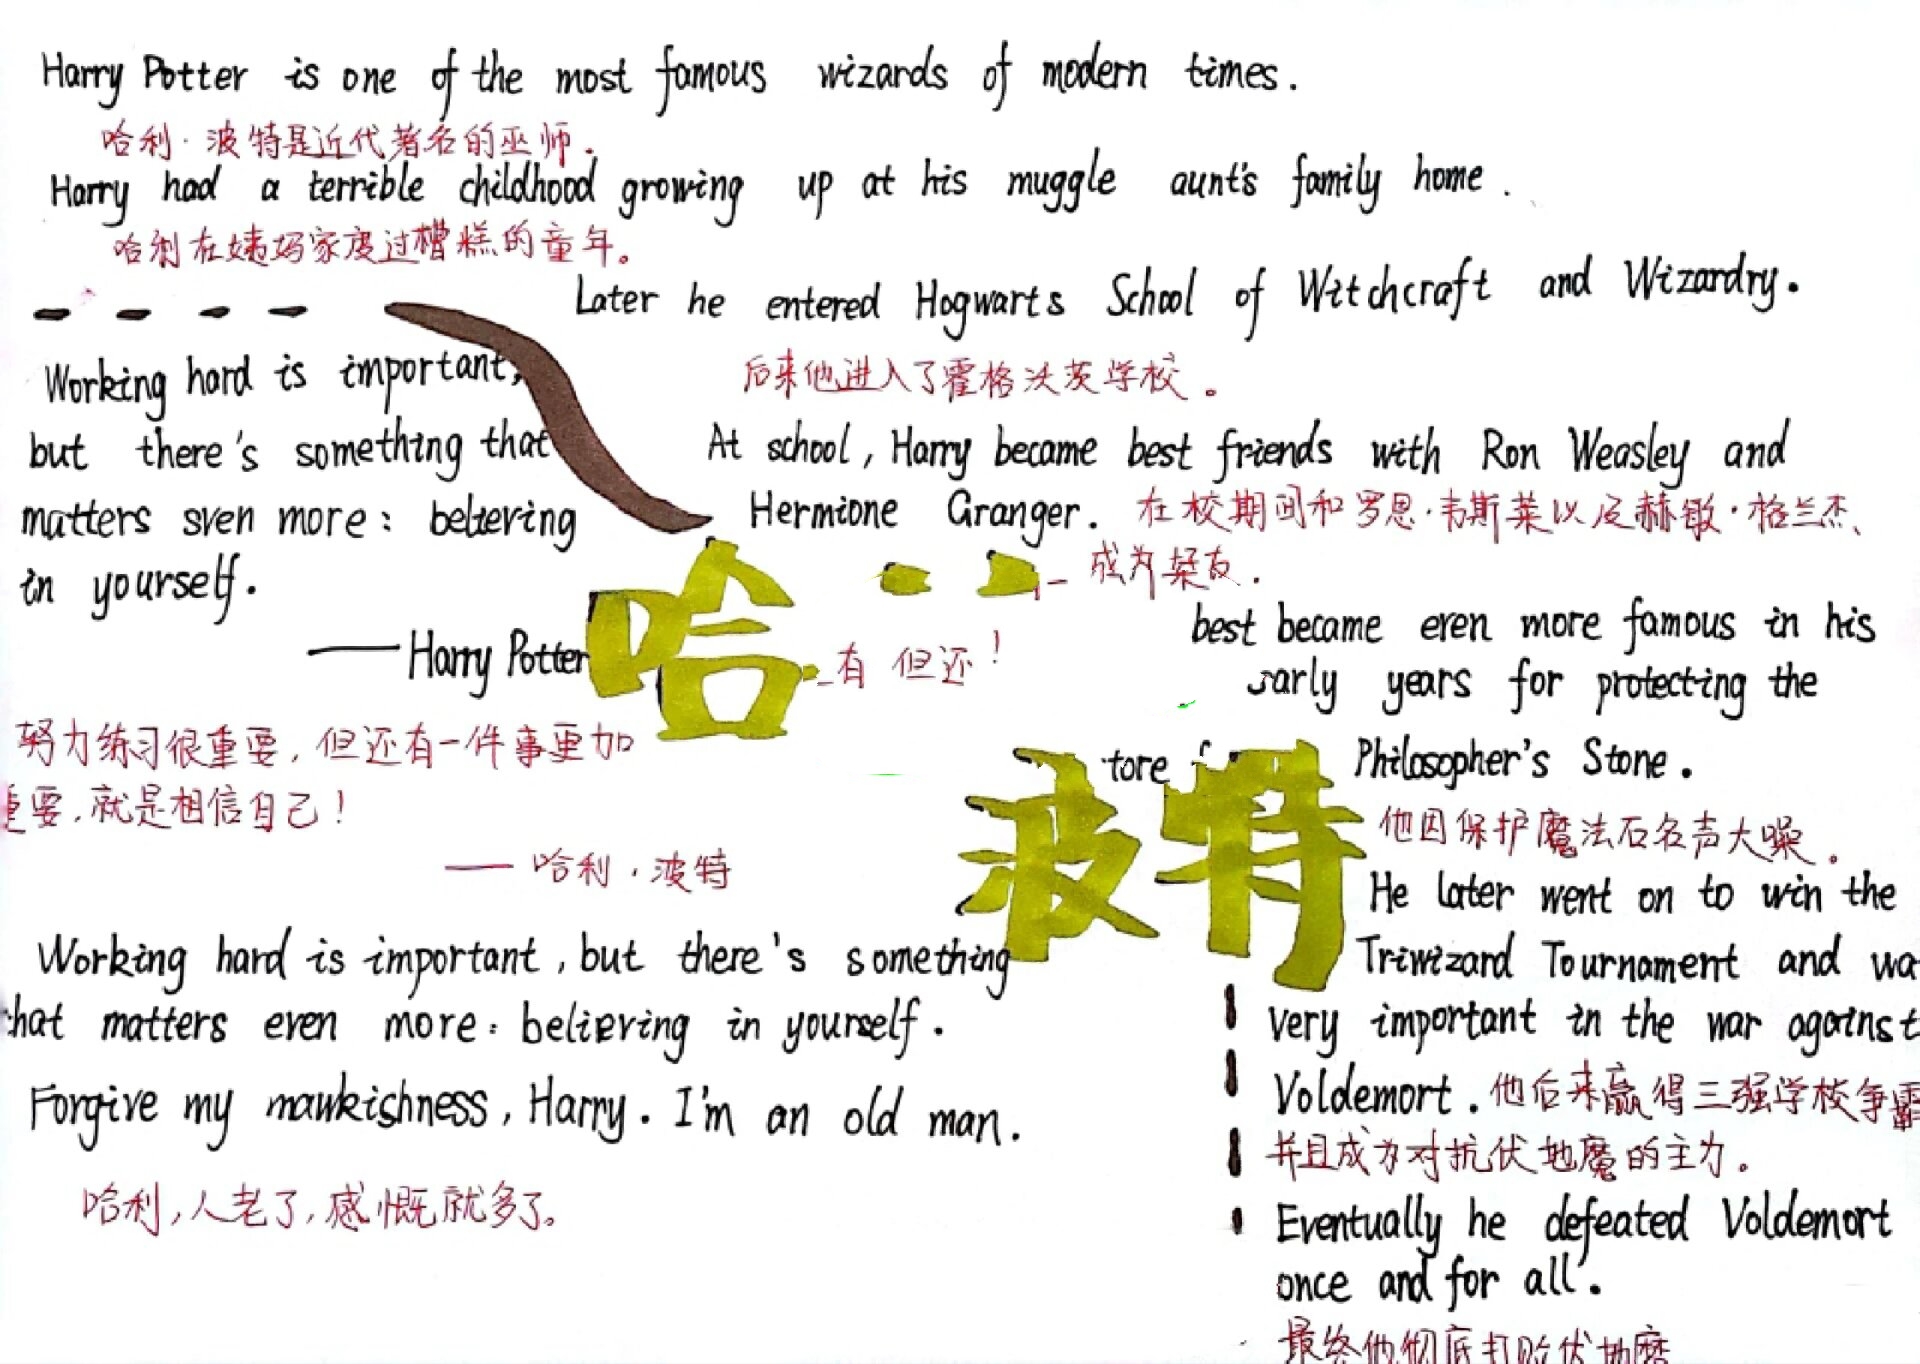 Harry Potter is one of the most famous wizards of modern times.
哈利·波特是近代著名的巫师.
Harry had a terrible childhood growing up at his muggle aunt's family home.
哈利在姨妈家度过糟糕的童年。
Later he entered Hogwarts School of Witchcraft and Wizardry.
后来他进入了霍格沃茨学校。
At school, Harry became best friends with Ron Weasley and
Hermione Granger. 在校期间和罗恩·韦斯莱以及赫敏·格兰杰、
成为挚友.
Working hard is important,
but there's something that
matters sven more: believing
in yourself.
——Harry Potter
哈
有 但还!
努力练习很重要,但还有一件事更加
重要,就是相信自己!
—— 哈利·波特
best became even more famous in his
early years for protecting the
tore
Philosopher's Stone.
波特
他因保护魔法石名声大噪。
He later went on to win the
Triwizard Tournament and wa
very important in the war against
Voldemort. 他后来赢得三强学校争霸
并且成为对抗伏地魔的主力。
Eventually he defeated Voldemort
once and for all.
最终他彻底打败伏地魔
Working hard is important, but there's something
that matters even more: believing in yourself.
Forgive my mawkishness, Harry. I'm an old man.
哈利,人老了,感慨就多了。